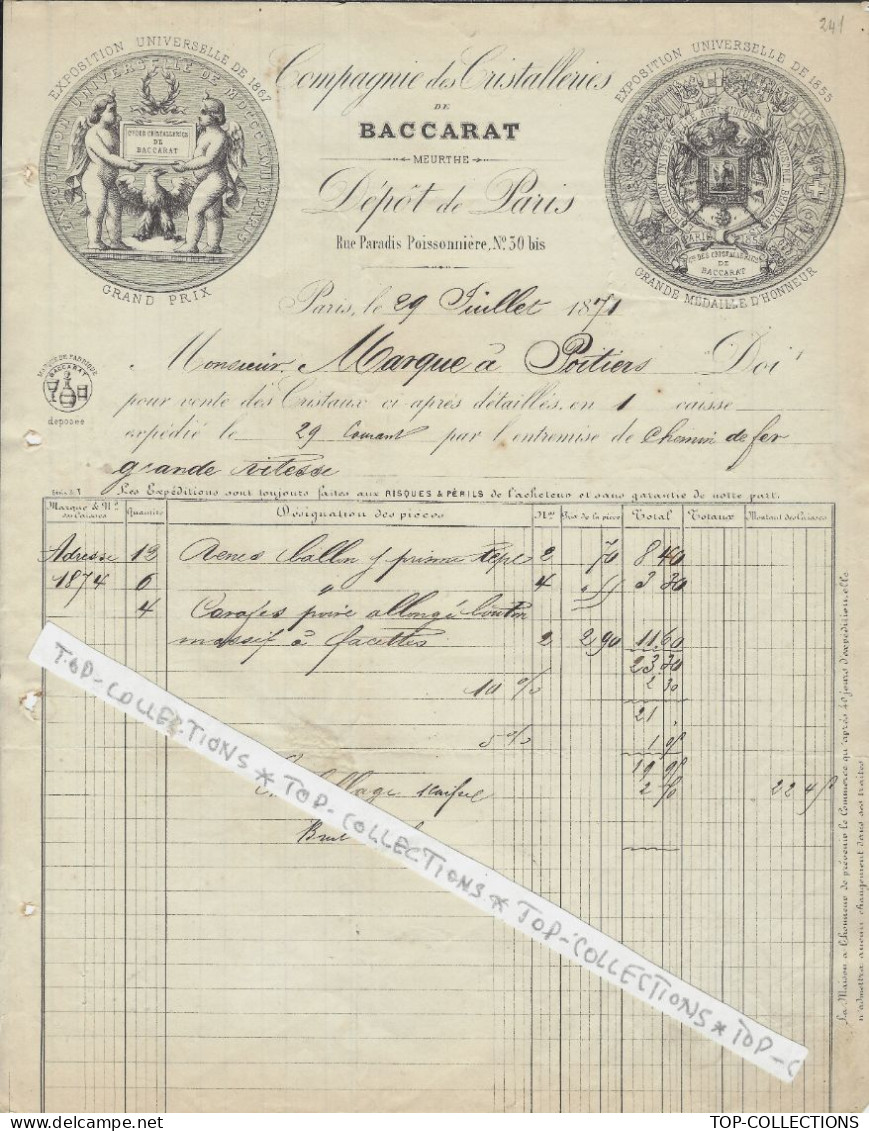 241
EXPOSITION UNIVERSELLE DE 1867
GRAND PRIX
Cie DES CRISTALLERIES
DE
BACCARAT
Compagnie des Cristalleries
DE
BACCARAT
MEURTHE
Dépôt de Paris
Rue Paradis Poissonnière, No. 30 bis
EXPOSITION UNIVERSELLE DE 1855
Cie DES CRISTALLERIES
DE
BACCARAT
GRANDE MÉDAILLE D'HONNEUR
Paris, le 29 Juillet 1871
Monsieur Marque à Poitiers Doit
MARQUE DE FABRIQUE
BACCARAT
déposée
pour vente des Cristaux ci après détaillés, en 1 caisse
expédié le 29 Courant par l'entremise de Chemin de fer
grande vitesse
Les Expéditions sont toujours faites aux RISQUES & PÉRILS de l'acheteur et sans garantie de notre part.
Marque & No. des Caisses Quantités Désignation des pièces Nos. Prix de la pièce Total Totaux Montant des Caisses
Adresse 12 ballon 2 70 8 40
1874 6 " 4 55 3 30
4 Carafes poire allongée bouton
massif à facettes 2 2,90 11,60
23 30
10 % 2 30
21
5 % 1 05
19 95
Emballage 2 50 22 45
Brut
La Maison a l'honneur de prévenir le Commerce qu'après 40 jours d'expédition, elle
n'admettra aucun changement dans ses traites
TOP-COLLECTIONS * TOP-COLLECTIONS * TOP-COLLECTIONS * TOP-C
TOP-COLLECTIONS